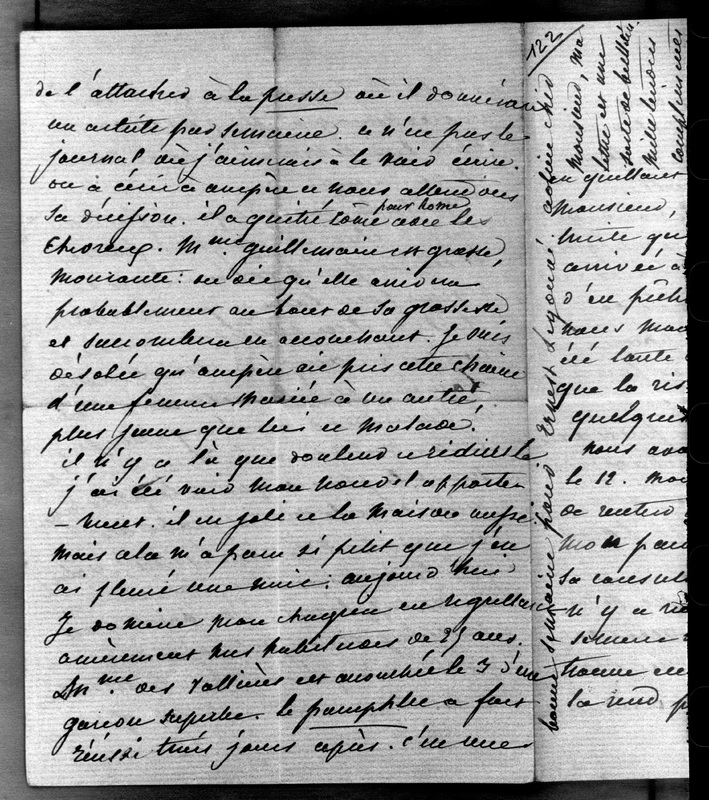 122
de l'attacher à la presse où il donnerait
un article par semaine. ce n'est pas le
journal où j'aimerais à le voir écrire.
on a écrit à ampère et nous attendons
sa décision. il a quitté rome avec les
pour home
Cheoreux. Mme guillemain est grosse,
mourante: on dit qu'elle arrivera
probablement au bout de sa grossesse
et succombera en accouchant. Je suis
désolée qu'ampère ait pris cette chaine
d'une femme mariée à un autre,
plus jeune que lui et malade.
il n'y a là que douleur et ridicule
j'ai été voir mon nouvel apparte
-ment. il est joli et la maison aussi
mais cela m'a paru si petit que j'en
ai pleuré une nuit: aujourd'hui
Je domine mon chagrin en regrettant
amèrement mes habitudes de 25 ans.
Mme des Vallières est accouchée le 3 d'un
garçon superbe. le pamphlet a fort
réussi trois jours après. c'est une
bonne semaine pour Ernest Legouvé.
monsieur, ma
lettre est une
sorte de bulletin
mille tendres
compliments
monsieur,
arrivée à
nous
que la
quelques
nous
le 12.
de rentrer
mon
sa
n'y a